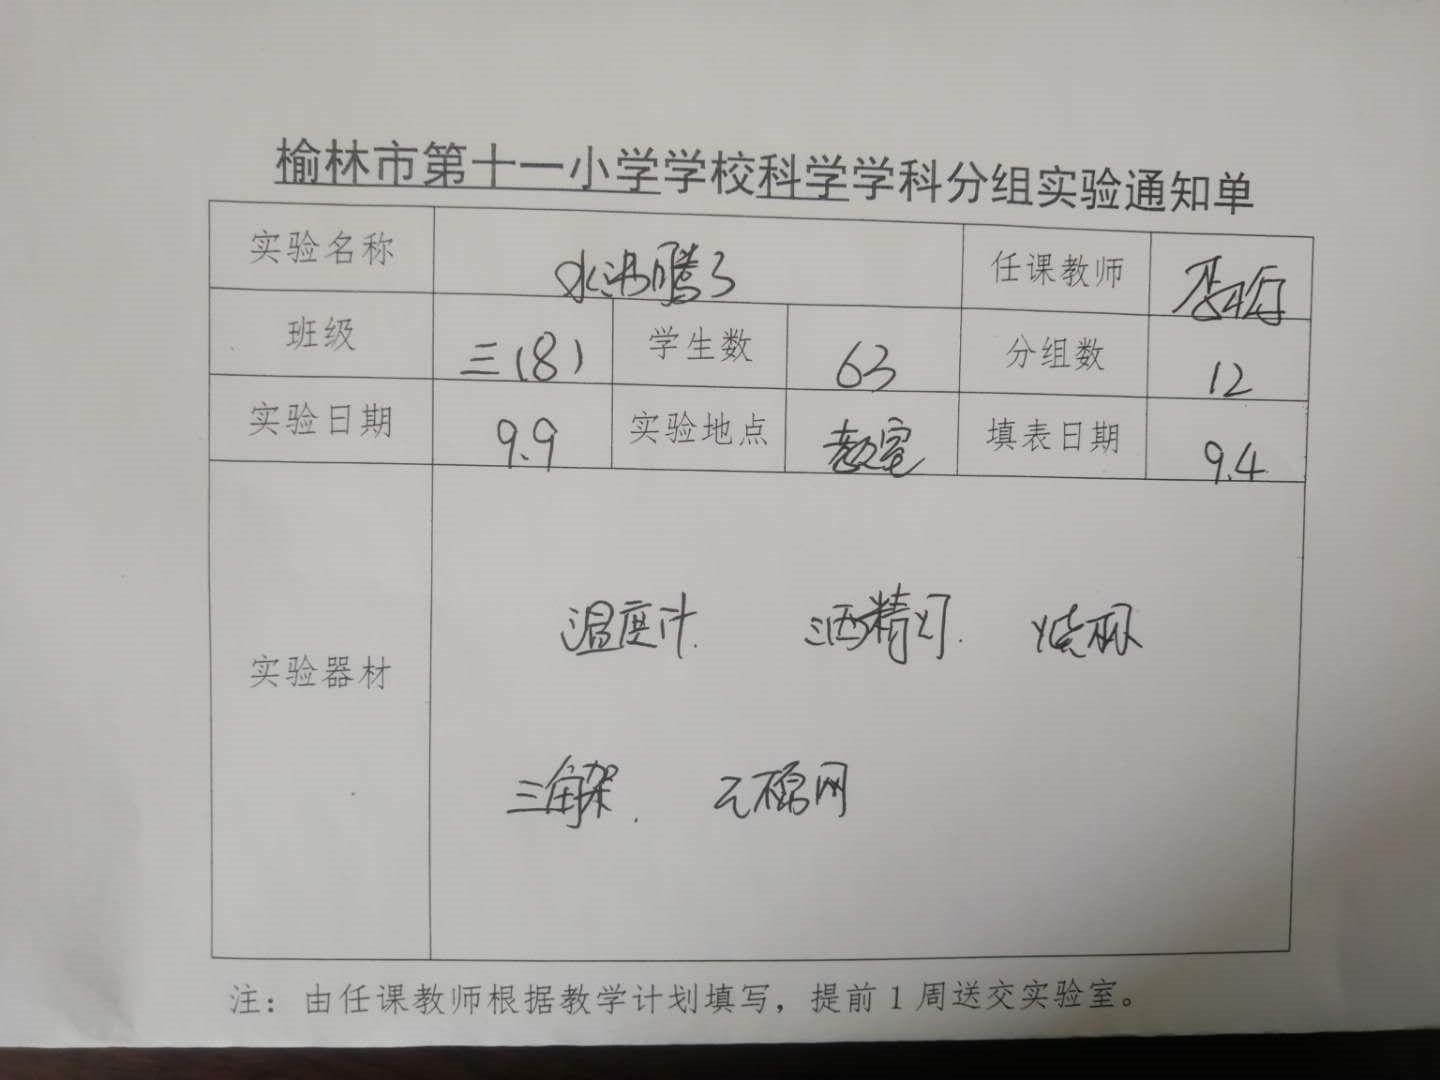 榆林市第十一小学学校科学学科分组实验通知单
实验名称 水沸腾了 任课教师
班级 三(8) 学生数 63 分组数 12
实验日期 9.9 实验地点 教室 填表日期 9.4
实验器材 温度计. 酒精灯. 烧杯
三角架. 石棉网
注：由任课教师根据教学计划填写，提前1周送交实验室。